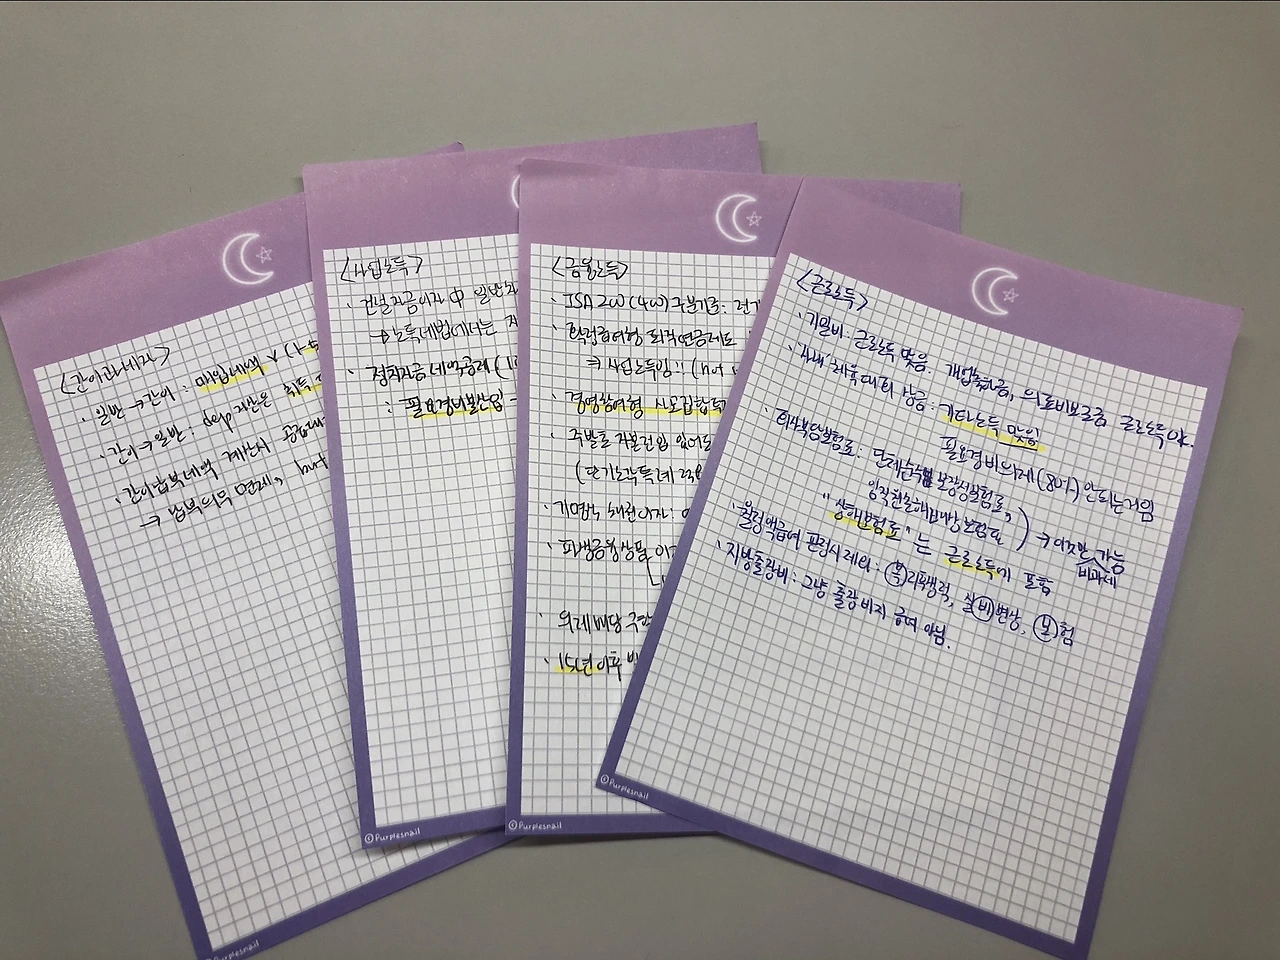 <간이과세자>
· 일반→간이: 매입세액 × (1-5
· 간이→일반: dep자산은 취득
· 간이납부세액 계산시 공제
→ 납부의무 면제, but
<사업소득>
· 건설자금이자 中 일반
→ 소득세법에서는
· 정치자금 세액공제 (1
: 필요경비불산입 →
©Purplesnail
<금융소득>
· ISA 200 (400) 구분기준:
· 확정급여형 퇴직연금제도
⇒ 사업소득임!! (not
· 경영참여형 사모집합투
· 주발초 자본전입 있어도
(단기소각특례 2358
· 파생금융상품 이
· 의제배당
· 15년 이후
©Purplesnail
<근로소득>
· 기밀비: 근로소득 맞음. 개업축하금, 의료비보조금 근로소득 ok.
· '사내' 체육대회 상금: 기타소득 맞음
필요경비의제(80%) 안되는거임
· 회사부담보험료: 단체순수 보장성보험료,
임직원손해배상보험료 ) → 이것만 가능
비과세
"상해보험료"는 근로소득에 포함
· 월정액급여 판정시 제외: 복리후생적, 실비변상, 보험
· 지방출장비: 그냥 출장비지 급여 아님.
©Purplesnail
©Purplesnail